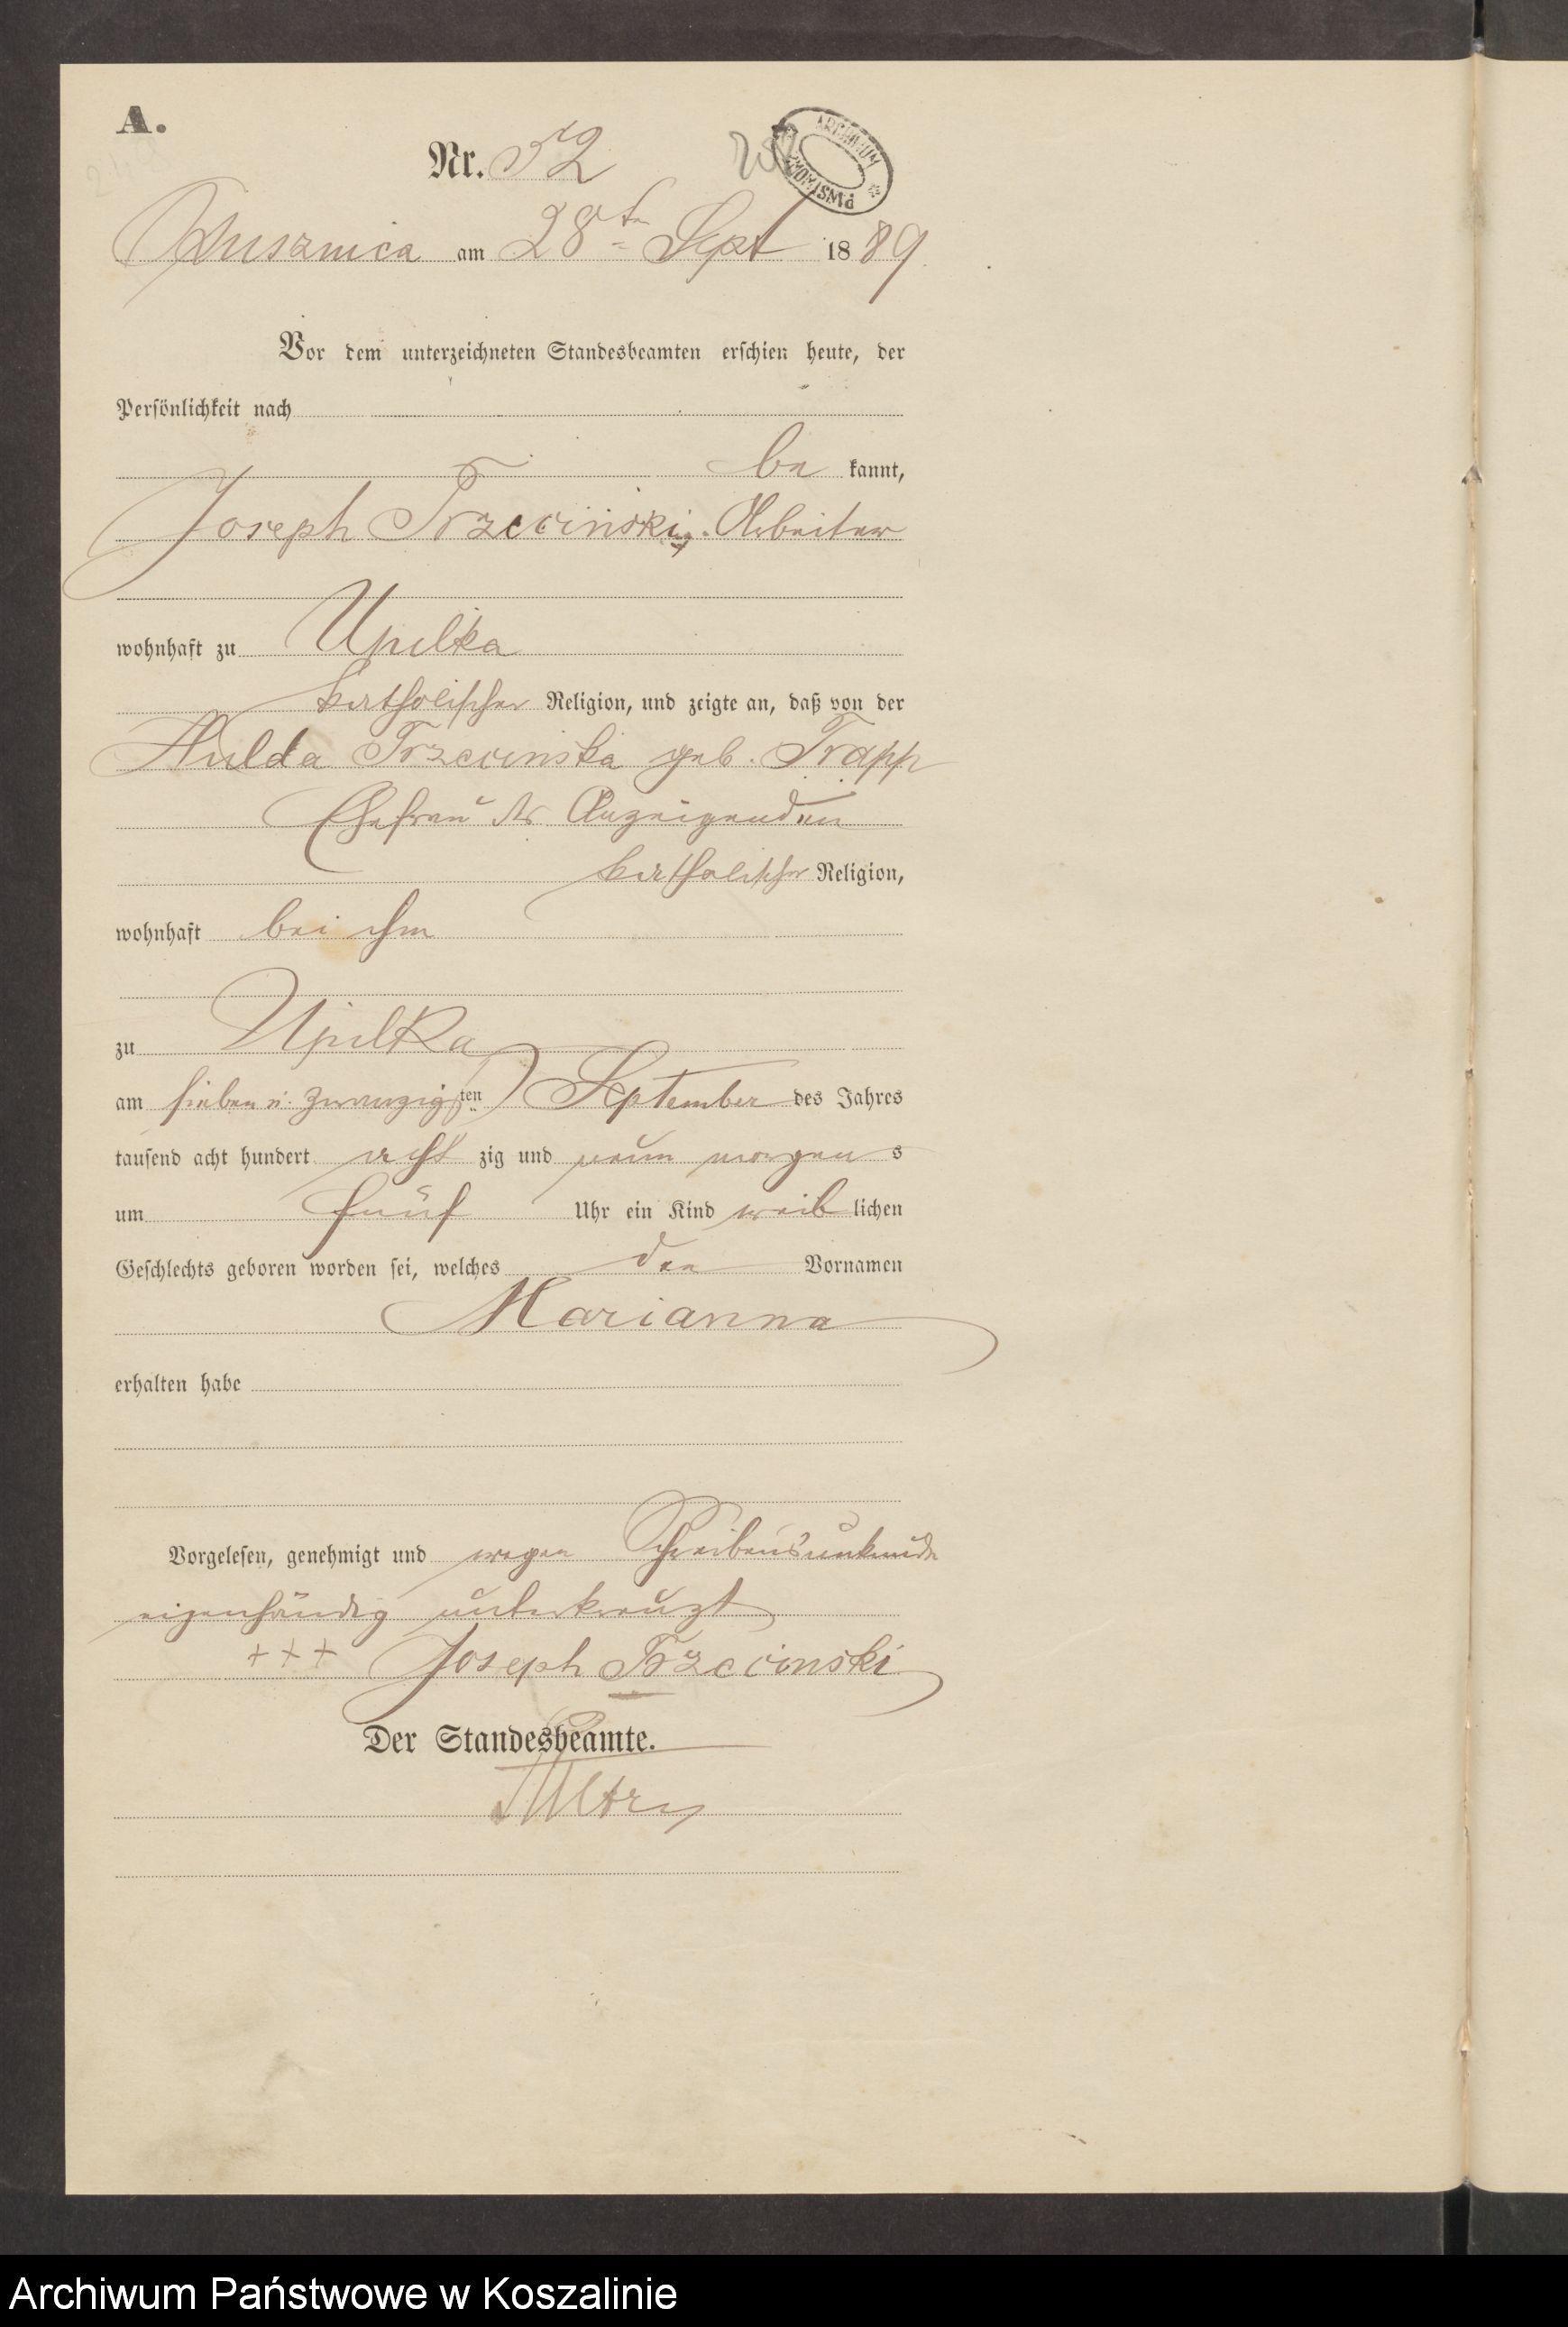 A.
Nr. 52
ARCHIWUM PAŃSTWOWE
am 28ten Sept 1889.
Vor dem unterzeichneten Standesbeamten erschien heute, der
Persönlichkeit nach
be kannt,
Joseph Trzcciński, Arbeiter
wohnhaft zu Upilka
katholischer Religion, und zeigte an, daß von der
Hulda Trzccinska geb. Trapp
Ehefrau des Anzeigenden
katholischer Religion,
wohnhaft bei ihm
zu Upilka
am sieben u. zwanzigsten September des Jahres
tausend acht hundert acht zig und neun morgens
um fünf Uhr ein Kind weiblichen
Geschlechts geboren worden sei, welches den Vornamen
Marianna
erhalten habe
Vorgelesen, genehmigt und wegen Schreibensunkunde
eigenhändig unterkreuzt
+++ Joseph Trzccinski
Der Standesbeamte.
Archiwum Państwowe w Koszalinie